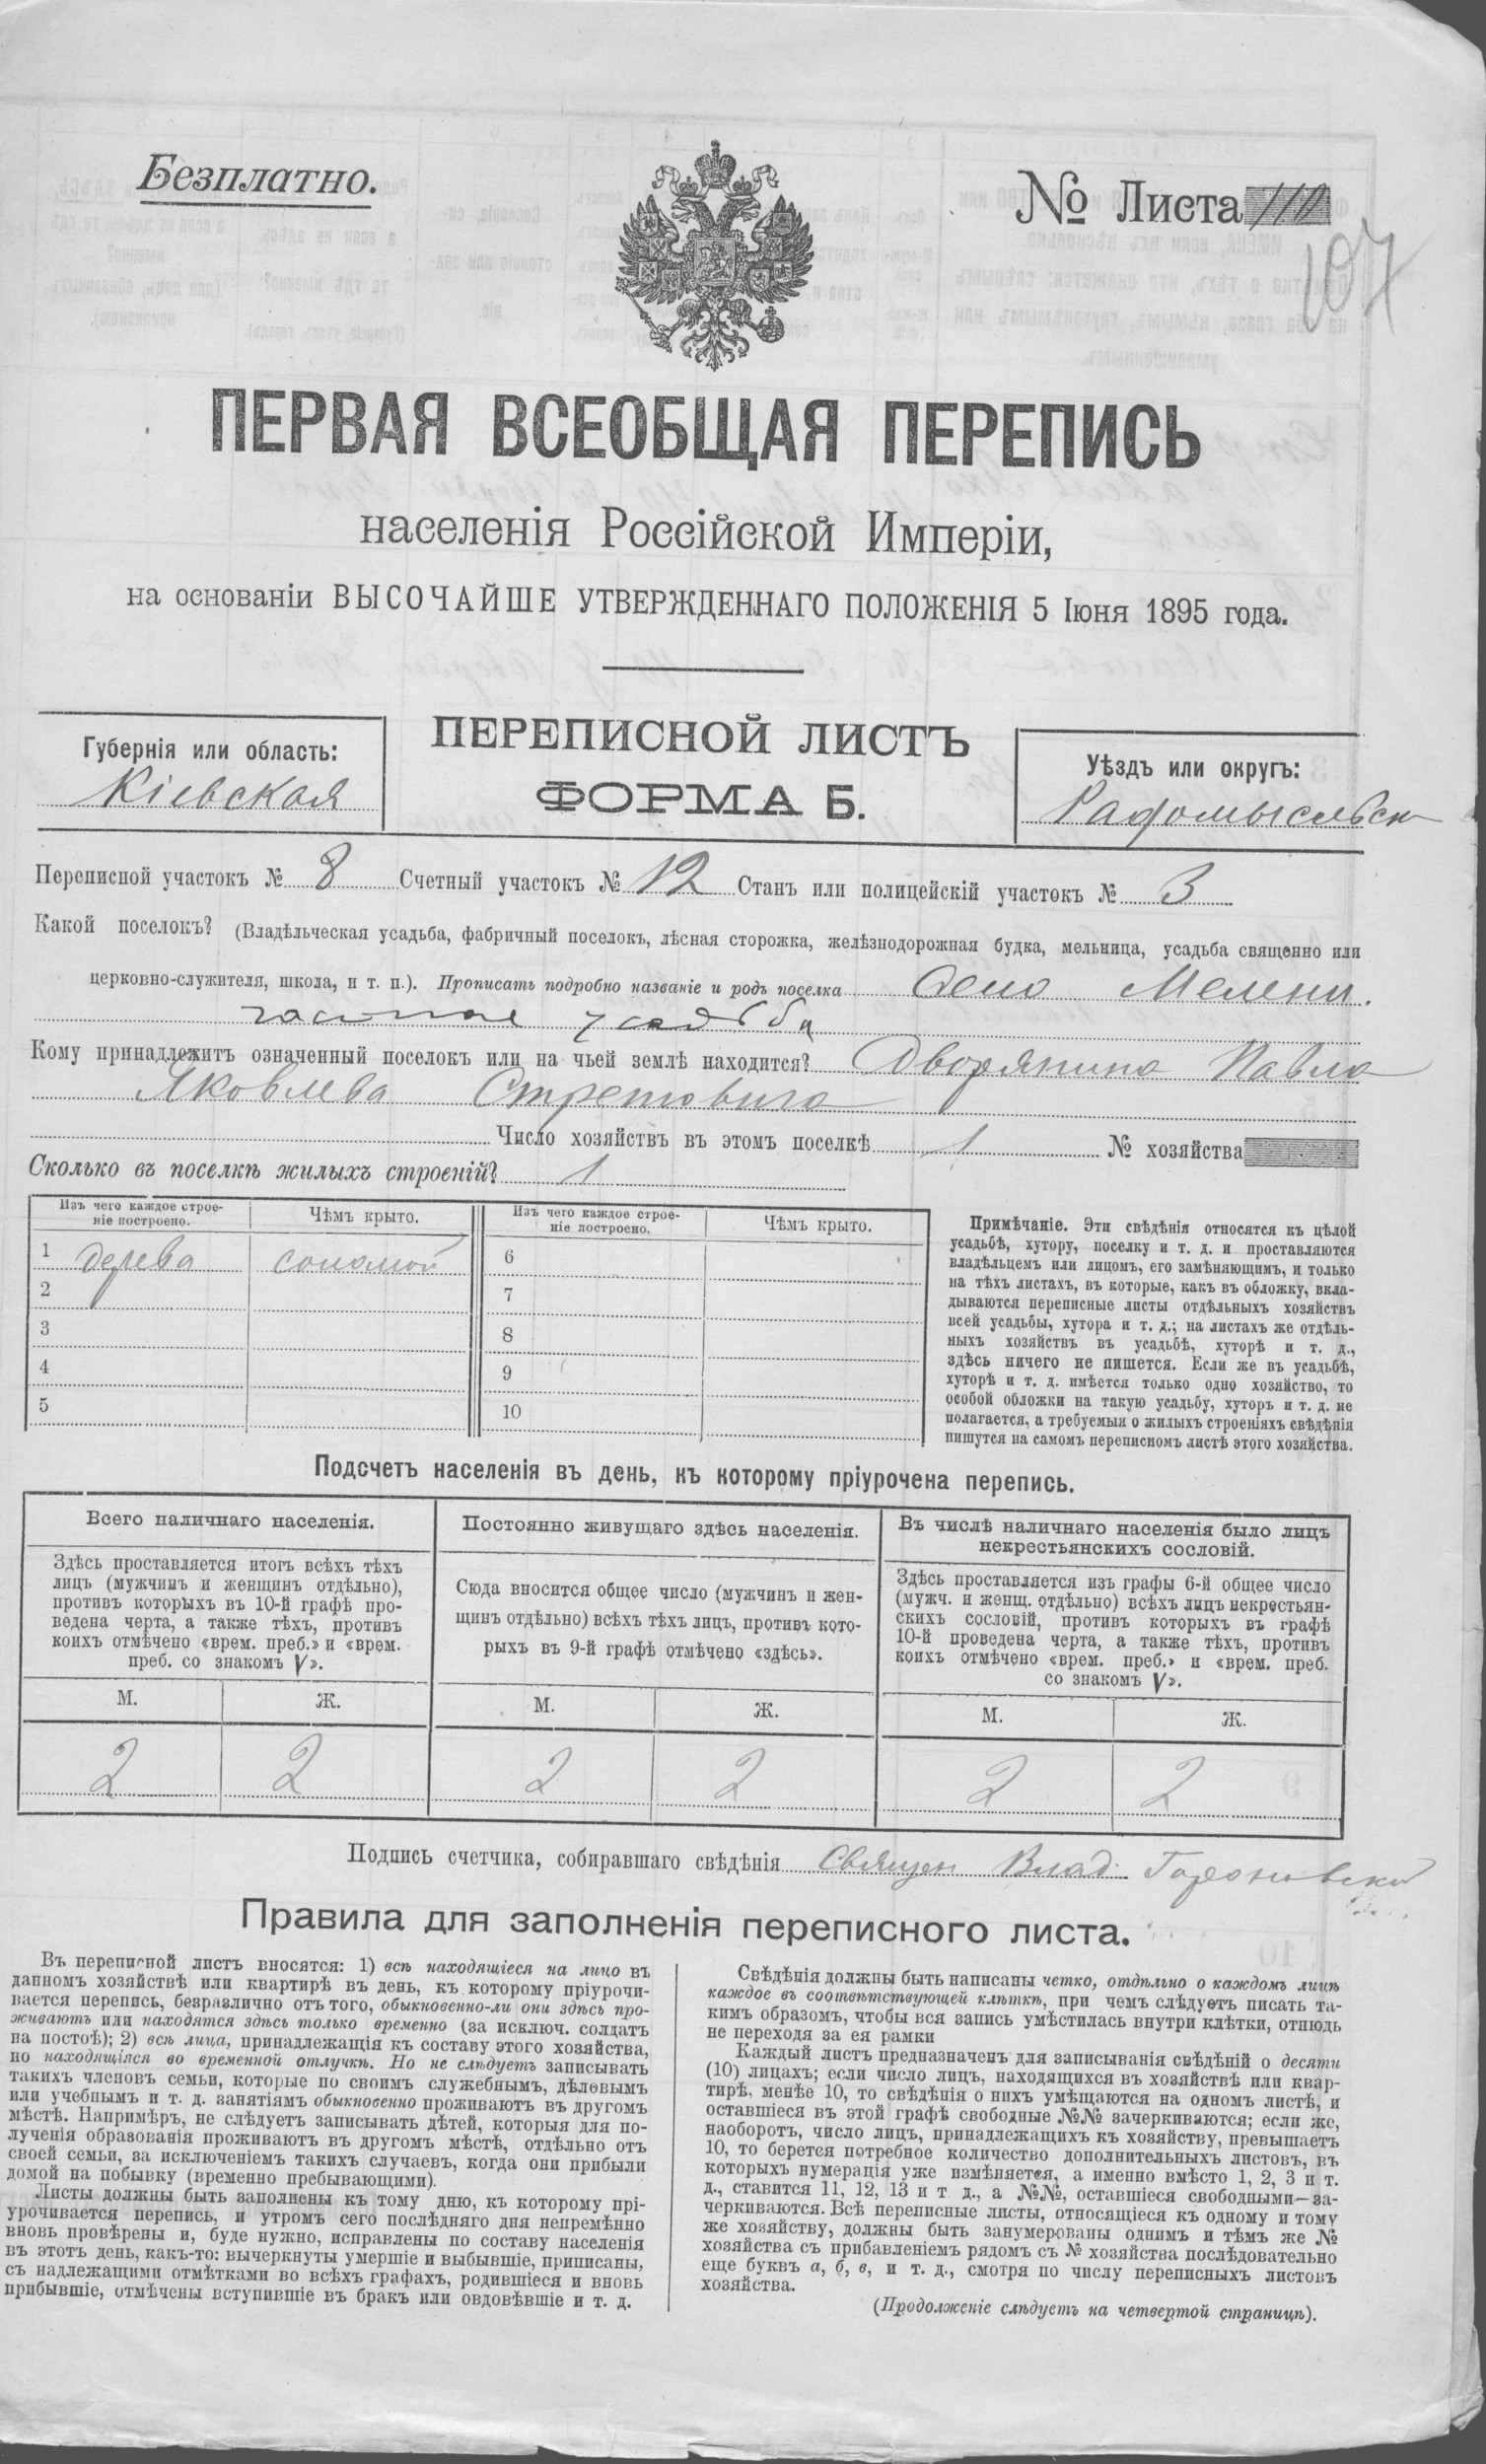 Безплатно.
№ Листа 110
107
ПЕРВАЯ ВСЕОБЩАЯ ПЕРЕПИСЬ
населенія Россійской Имперіи,
на основаніи ВЫСОЧАЙШЕ УТВЕРЖДЕННАГО ПОЛОЖЕНІЯ 5 Іюня 1895 года.
Губернія или область:
Кіевская
ПЕРЕПИСНОЙ ЛИСТЪ
ФОРМА Б.
Уѣздъ или округъ:
Радомысльск
Переписной участокъ № 8 Счетный участокъ № 12 Станъ или полицейскій участокъ № 3
Какой поселокъ? (Владѣльческая усадьба, фабричный поселокъ, лѣсная сторожка, желѣзнодорожная будка, мельница, усадьба священно или
церковно-служителя, школа, и т. п.). Прописать подробно названіе и родъ поселка Село Мелени.
усадьба
Кому принадлежитъ означенный поселокъ или на чьей землѣ находится? Дворянина Павла
Яковлева
Число хозяйствъ въ этомъ поселкѣ 1 № хозяйства
Сколько въ поселкѣ жилыхъ строеній? 1
Изъ чего каждое строе-
ніе построено.
Чѣмъ крыто.
Изъ чего каждое строе-
ніе построено.
Чѣмъ крыто.
1 дерева соломой 6
2 7
3 8
4 9
5 10
Примѣчаніе. Эти свѣдѣнія относятся къ цѣлой
усадьбѣ, хутору, поселку и т. д. и проставляются
владѣльцемъ или лицомъ, его замѣняющимъ, и только
на тѣхъ листахъ, въ которые, какъ въ обложку, вкла-
дываются переписные листы отдѣльныхъ хозяйствъ
всей усадьбы, хутора и т. д.; на листахъ же отдѣль-
ныхъ хозяйствъ въ усадьбѣ, хуторѣ и т. д.,
здѣсь ничего не пишется. Если же въ усадьбѣ,
хуторѣ и т. д. имѣется только одно хозяйство, то
особой обложки на такую усадьбу, хуторъ и т. д. не
полагается, а требуемыя о жилыхъ строеніяхъ свѣдѣнія
пишутся на самомъ переписномъ листѣ этого хозяйства.
Подсчетъ населенія въ день, къ которому пріурочена перепись.
Всего наличнаго населенія.
Здѣсь проставляется итогъ всѣхъ тѣхъ
лицъ (мужчинъ и женщинъ отдѣльно),
противъ которыхъ въ 10-й графѣ про-
ведена черта, а также тѣхъ, противъ
коихъ отмѣчено «врем. преб.» и «врем.
преб. со знакомъ V».
Постоянно живущаго здѣсь населенія.
Сюда вносится общее число (мужчинъ и жен-
щинъ отдѣльно) всѣхъ тѣхъ лицъ, противъ кото-
рыхъ въ 9-й графѣ отмѣчено «здѣсь».
Въ числѣ наличнаго населенія было лицъ
некрестьянскихъ сословій.
Здѣсь проставляется изъ графы 6-й общее число
(мужч. и женщ. отдѣльно) всѣхъ лицъ некрестьян-
скихъ сословій, противъ которыхъ въ графѣ
10-й проведена черта, а также тѣхъ, противъ
коихъ отмѣчено «врем. преб.» и «врем. преб.
со знакомъ V».
М. Ж. М. Ж. М. Ж.
2 2 2 2 2 2
Подпись счетчика, собиравшаго свѣдѣнія Священ Влад.
Правила для заполненія переписного листа.
Въ переписной листъ вносятся: 1) всѣ находящіеся на лицо въ
данномъ хозяйствѣ или квартирѣ въ день, къ которому пріурочи-
вается перепись, безразлично отъ того, обыкновенно-ли они здѣсь про-
живаютъ или находятся здѣсь только временно (за исключ. солдатъ
на постоѣ); 2) всѣ лица, принадлежащія къ составу этого хозяйства,
но находящіяся во временной отлучкѣ. Но не слѣдуетъ записывать
такихъ членовъ семьи, которые по своимъ служебнымъ, дѣловымъ
или учебнымъ и т. д. занятіямъ обыкновенно проживаютъ въ другомъ
мѣстѣ. Напримѣръ, не слѣдуетъ записывать дѣтей, которыя для по-
лученія образованія проживаютъ въ другомъ мѣстѣ, отдѣльно отъ
своей семьи, за исключеніемъ такихъ случаевъ, когда они прибыли
домой на побывку (временно пребывающими).
Листы должны быть заполнены къ тому дню, къ которому прі-
урочивается перепись, и утромъ сего послѣдняго дня непремѣнно
вновь провѣрены и, буде нужно, исправлены по составу населенія
въ этотъ день, какъ-то: вычеркнуты умершіе и выбывшіе, приписаны,
съ надлежащими отмѣтками во всѣхъ графахъ, родившіеся и вновь
прибывшіе, отмѣчены вступившіе въ бракъ или овдовѣвшіе и т. д.
Свѣдѣнія должны быть написаны четко, отдѣльно о каждомъ лицѣ
каждое въ соотвѣтствующей клѣткѣ, при чемъ слѣдуетъ писать та-
кимъ образомъ, чтобы вся запись умѣстилась внутри клѣтки, отнюдь
не переходя за ея рамки
Каждый листъ предназначенъ для записыванія свѣдѣній о десяти
(10) лицахъ; если число лицъ, находящихся въ хозяйствѣ или квар-
тирѣ, менѣе 10, то свѣдѣнія о нихъ умѣщаются на одномъ листѣ, и
оставшіеся въ этой графѣ свободные №№ зачеркиваются; если же,
наоборотъ, число лицъ, принадлежащихъ къ хозяйству, превышаетъ
10, то берется потребное количество дополнительныхъ листовъ, въ
которыхъ нумерація уже измѣняется, а именно вмѣсто 1, 2, 3 и т.
д., ставится 11, 12, 13 и т. д., а №№, оставшіеся свободными—за-
черкиваются. Всѣ переписные листы, относящіеся къ одному и тому
же хозяйству, должны быть занумерованы однимъ и тѣмъ же №
хозяйства съ прибавленіемъ рядомъ съ № хозяйства послѣдовательно
еще буквъ а, б, в, и т. д., смотря по числу переписныхъ листовъ
хозяйства.
(Продолженіе слѣдуетъ на четвертой страницѣ).